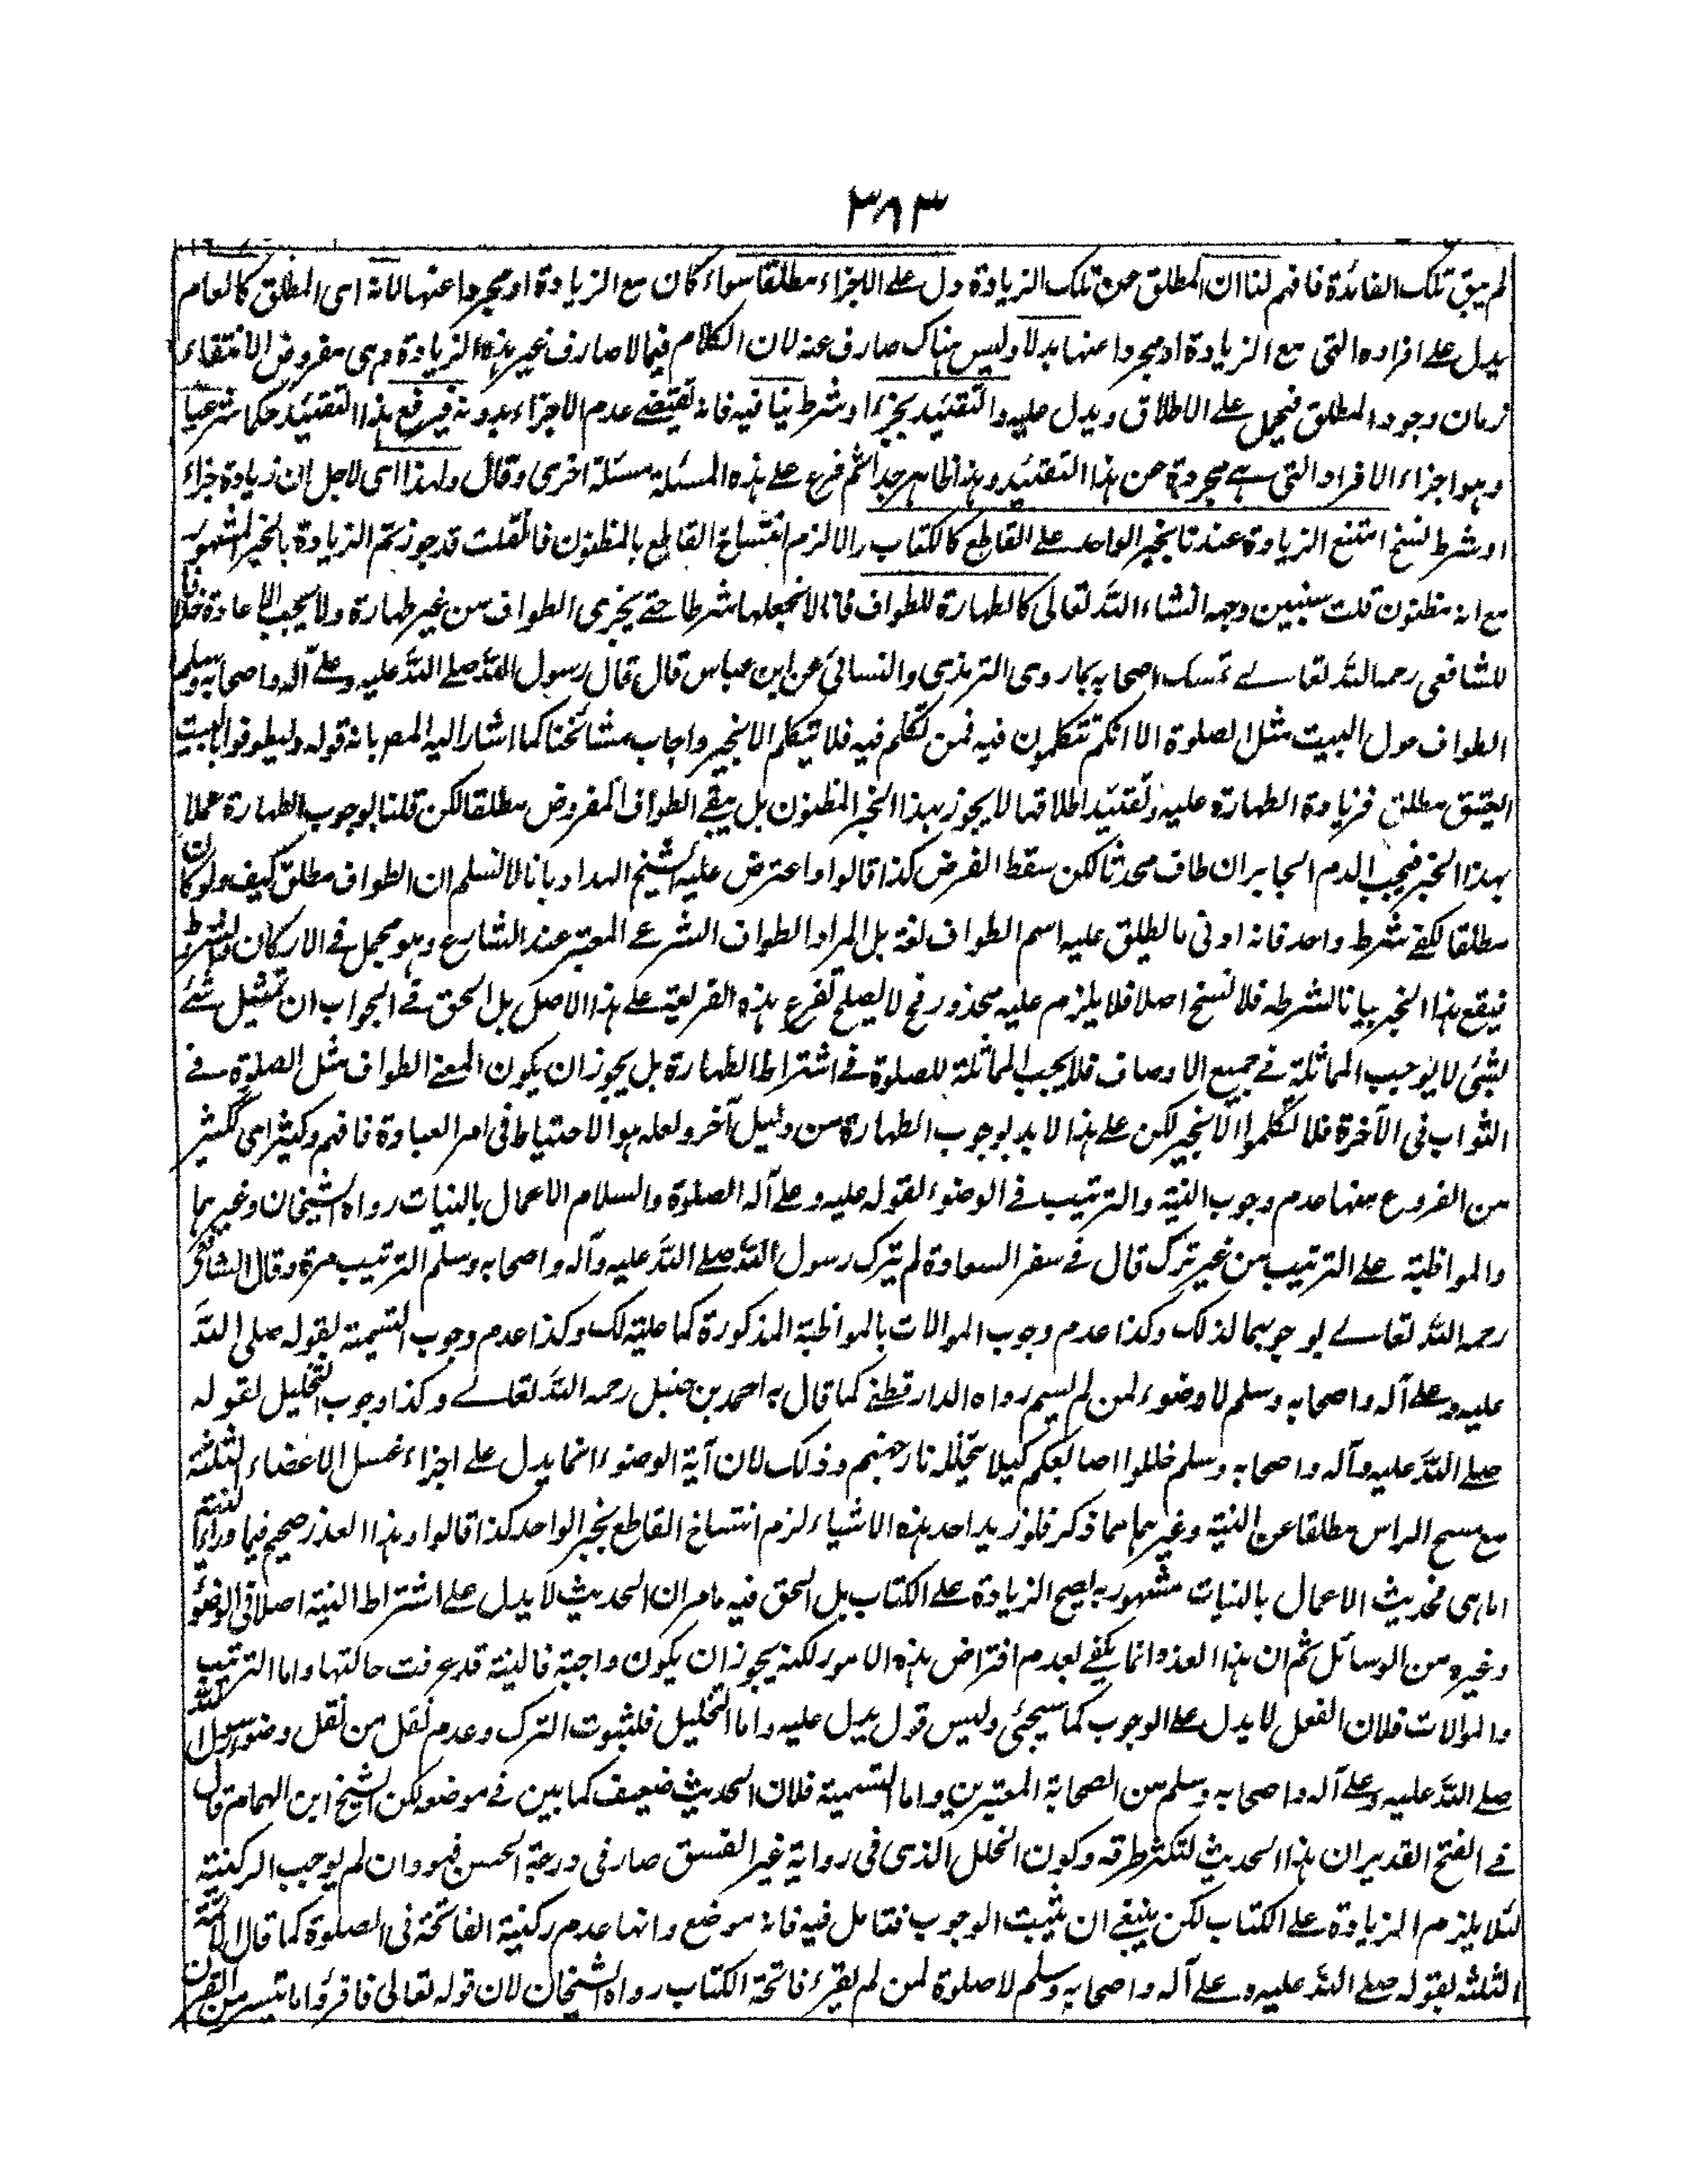 ٣٨٣
لم يبق تلك الفائدة فافهم لنا ان المطلق عن تلك الزيادة دل على الاجزاء مطلقا سواء كان مع الزيادة او مجردا عنها لانه اى المطلق كالعام
يدل على افراده التى مع الزيادة او مجردا عنها بدلا وليس هناك صارف عنه لان الكلام فيما لا صارف غير هذه الزيادة وهى مفروض الانتفاء
زمان وجود المطلق فيحمل على الاطلاق ويدل عليه والتقئيد بجزء او شرط ينافيه فانه يقتضى عدم الاجزاء بدونه فيرفع هذا التقئيد حكما شرعيا
وهو اجزاء الافراد التى هى مجردة عن هذا التقئيد وهذا ظاهر جدا ثم فرع على هذه المسئلة مسئلة اخرى وقال ولهذا اى لاجل ان زيادة جزء
او شرط نسخ امتنع الزيادة عندنا بخبر الواحد على القاطع كالكتاب والا لزم انتساخ القاطع بالمظنون فان قلت قد جوزتم الزيادة بالخبر المشهور
مع انه مظنون قلت سنبين وجهه انشاء الله تعالى كالطهارة للطواف فانا لا نجعلها شرطا حتى يجزى الطواف من غير طهارة ولا يجب الاعادة خلافا
للشافعى رحمه الله تعالى تمسك اصحابه بما روى الترمذى والنسائى عن ابن عباس قال قال رسول الله صلى الله عليه وعلى آله واصحابه وسلم
الطواف حول البيت مثل الصلوة الا انكم تتكلمون فيه فمن تكلم فيه فلا يتكلم الا بخير واجاب مشائخنا كما اشار اليه المصر بانه قوله وليطوفوا بالبيت
العتيق مطلق فزيادة الطهارة عليه وتقئيد اطلاقها لا يجوز بهذا الخبر المظنون بل يبقى الطواف المفروض مطلقا لكن قلنا بوجوب الطهارة عملا
بهذا الخبر فيجب الدم الجابر ان طاف محدثا لكن سقط الفرض كذا قالوا واعترض عليه الشيخ الهداد بانا لا نسلم ان الطواف مطلق كيف ولو كان
مطلقا لكفى شرط واحد فانه ادنى ما يطلق عليه اسم الطواف لغة بل المراد الطواف الشرعى المعتبر عند الشارع وهو مجمل فى الاركان والشرط
فيقع هذا الخبر بيانا لشرطه فلا نسخ اصلا فلا يلزم عليه محذور فح لا يصلح تفرع هذه الفريعة على هذا الاصل بل الحق فى الجواب ان تمثيل شئ
بشئ لا يوجب المماثلة فى جميع الاوصاف فلا يجب المماثلة للصلوة فى اشتراط الطهارة بل يجوز ان يكون المعنى الطواف مثل الصلوة فى
الثواب فى الآخرة فلا تكلموا الا بخير لكن على هذا لا بد لوجوب الطهارة من دليل آخر ولعله هو الاحتياط فى امر العبادة فافهم وكثير اى لكثير
من الفروع منها عدم وجوب النية والترتيب فى الوضوء لقوله عليه وعلى آله الصلوة والسلام الاعمال بالنيات رواه الشيخان وغيرهما
والمواظبة على الترتيب من غير ترك قال فى سفر السعادة لم يترك رسول الله صلى الله عليه وآله واصحابه وسلم الترتيب مرة وقال الشافعى
رحمه الله تعالى بوجوبهما لذلك وكذا عدم وجوب الموالات بالمواظبة المذكورة كما عليه لك وكذا عدم وجوب التسمية لقوله صلى الله
عليه وعلى آله واصحابه وسلم لا وضوء لمن لم يسم رواه الدارقطنى كما قال به احمد بن حنبل رحمه الله تعالى وكذا وجوب التخليل لقوله
صلى الله عليه وآله واصحابه وسلم خللوا اصابعكم كيلا تتخلله نار جهنم وذلك لان آية الوضوء انما يدل على اجزاء غسل الاعضاء الثلثة
مع مسح الراس مطلقا عن النية وغيرهما مما ذكر فلو زيد احد هذه الاشياء لزم انتساخ القاطع بخبر الواحد كذا قالوا وهذا العذر صحيح فيما وراء النية
اما هى فحديث الاعمال بالنيات مشهور به يصح الزيادة على الكتاب بل الحق فيه ما مر ان الحديث لا يدل على اشتراط النية اصلا فى الوضوء
وغيره من الوسائل ثم ان هذا العذر انما يكفى لعدم افتراض هذه الامور لكنه يجوز ان يكون واجبة فالنية قد عرفت حالتها واما الترتيب
والموالات فلان الفعل لا يدل على الوجوب كما سيجئ وليس قول يدل عليه واما التخليل فلثبوت الترك وعدم نقل من نقل وضوء رسول الله
صلى الله عليه وعلى آله واصحابه وسلم من الصحابة المعتبرين واما التسمية فلان الحديث ضعيف كما بين فى موضعه لكن الشيخ ابن الهمام قال
فى الفتح القدير ان هذا الحديث لتكثر طرقه وكون الخلل الذى فى رواية غير الفسق صار فى درجة الحسن فهو وان لم يوجب الركنية
لئلا يلزم الزيادة على الكتاب لكن ينبغى ان يثبت الوجوب فتامل فيه فانه موضع وانها عدم ركنية الفاتحة فى الصلوة كما قال الائمة
الثلثة لقوله صلى الله عليه وعلى آله واصحابه وسلم لا صلوة لمن لم يقرء فاتحة الكتاب رواه الشيخان لان قوله تعالى فاقرؤا ما تيسر من القرآن